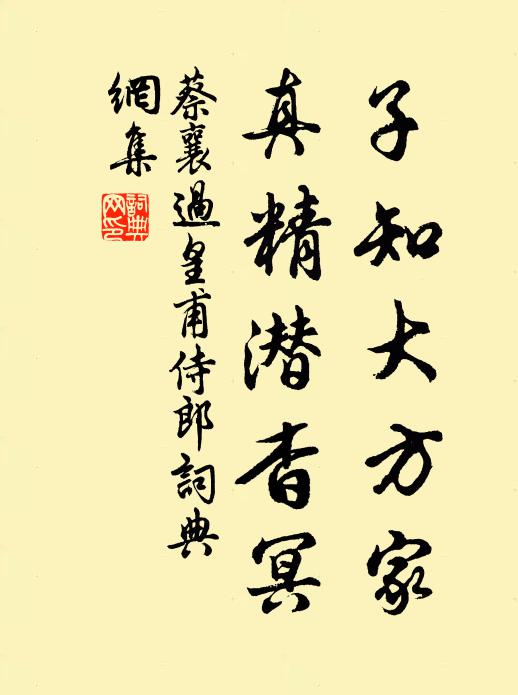 子知大方家
真精潜杳冥
蔡襄過皇甫侍郎詞典
網集
詞典
网印